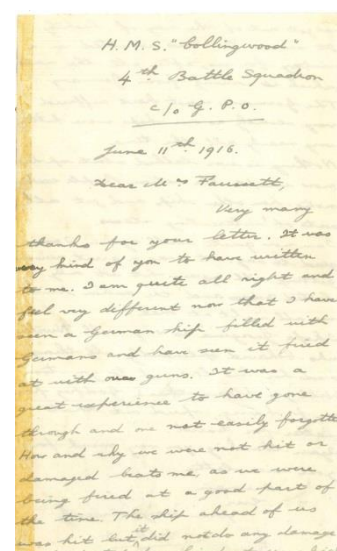 H. M. S. "Collingwood"
4th Battle Squadron
c/o G. P. O.
June 11th 1916.
Dear Mrs Faussett,
Very many
thanks for your letter. It was
very kind of you to have written
to me. I am quite all right and
feel very different now that I have
seen a German ship filled with
Germans and have seen it fired
at with our guns. It was a
great experience to have gone
through and one not easily forgotte
How and why we were not hit or
damaged beats me, as we were
being fired at a good part of
the time. The ship ahead of us
was hit but it did not do any damage